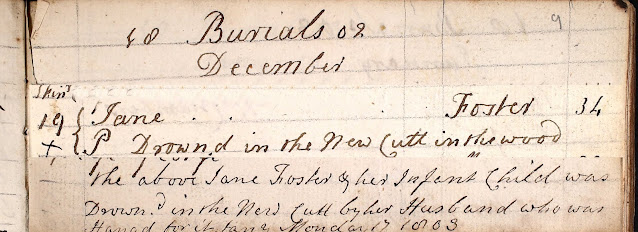 9
18 Burials 02
December
19 { Jane . . . . Foster 34
+ { P Drown,d in the New Cutt in the wood
the above Jane Foster & her Infant Child was
Drown,d in the New Cutt by her Husband who was
Hangd for